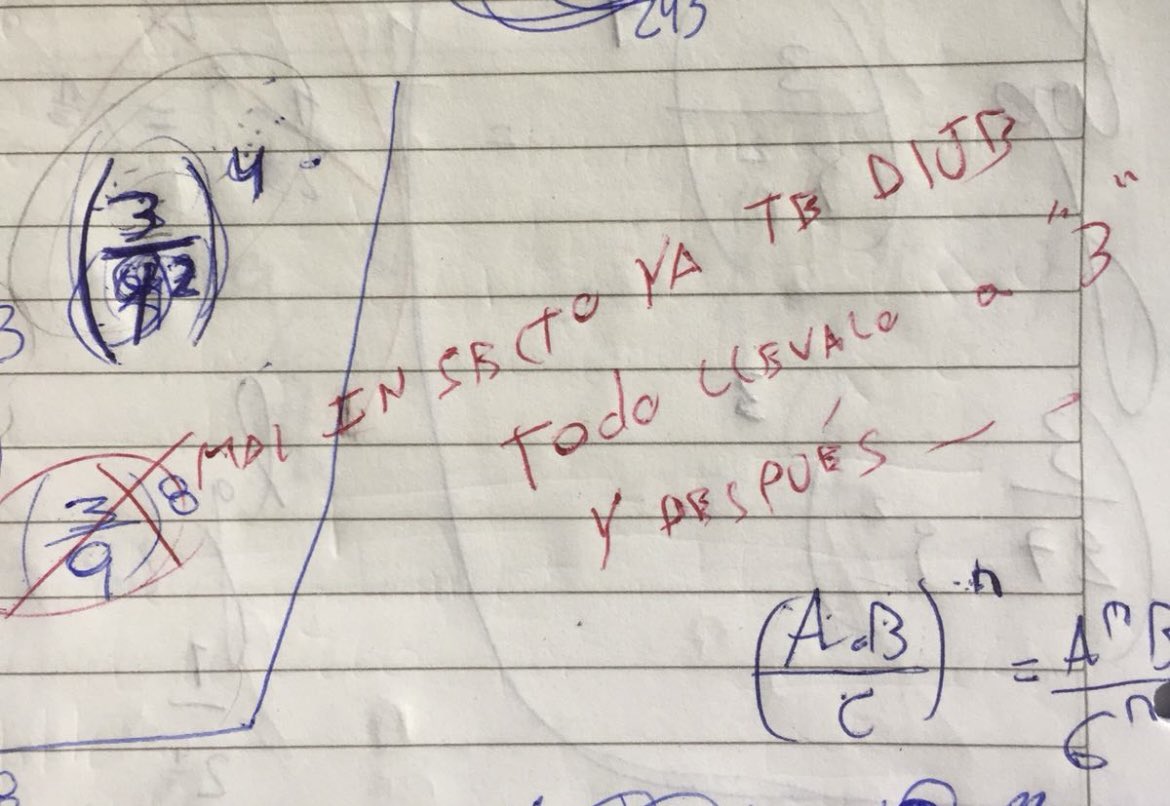 243
(3/9²)⁴
(3/9)⁸
MAL INSECTO YA TE DIJE
TODO LLEVALO a "3"
Y DESPUÉS —
(A.B/C)ⁿ = AⁿB/Cⁿ